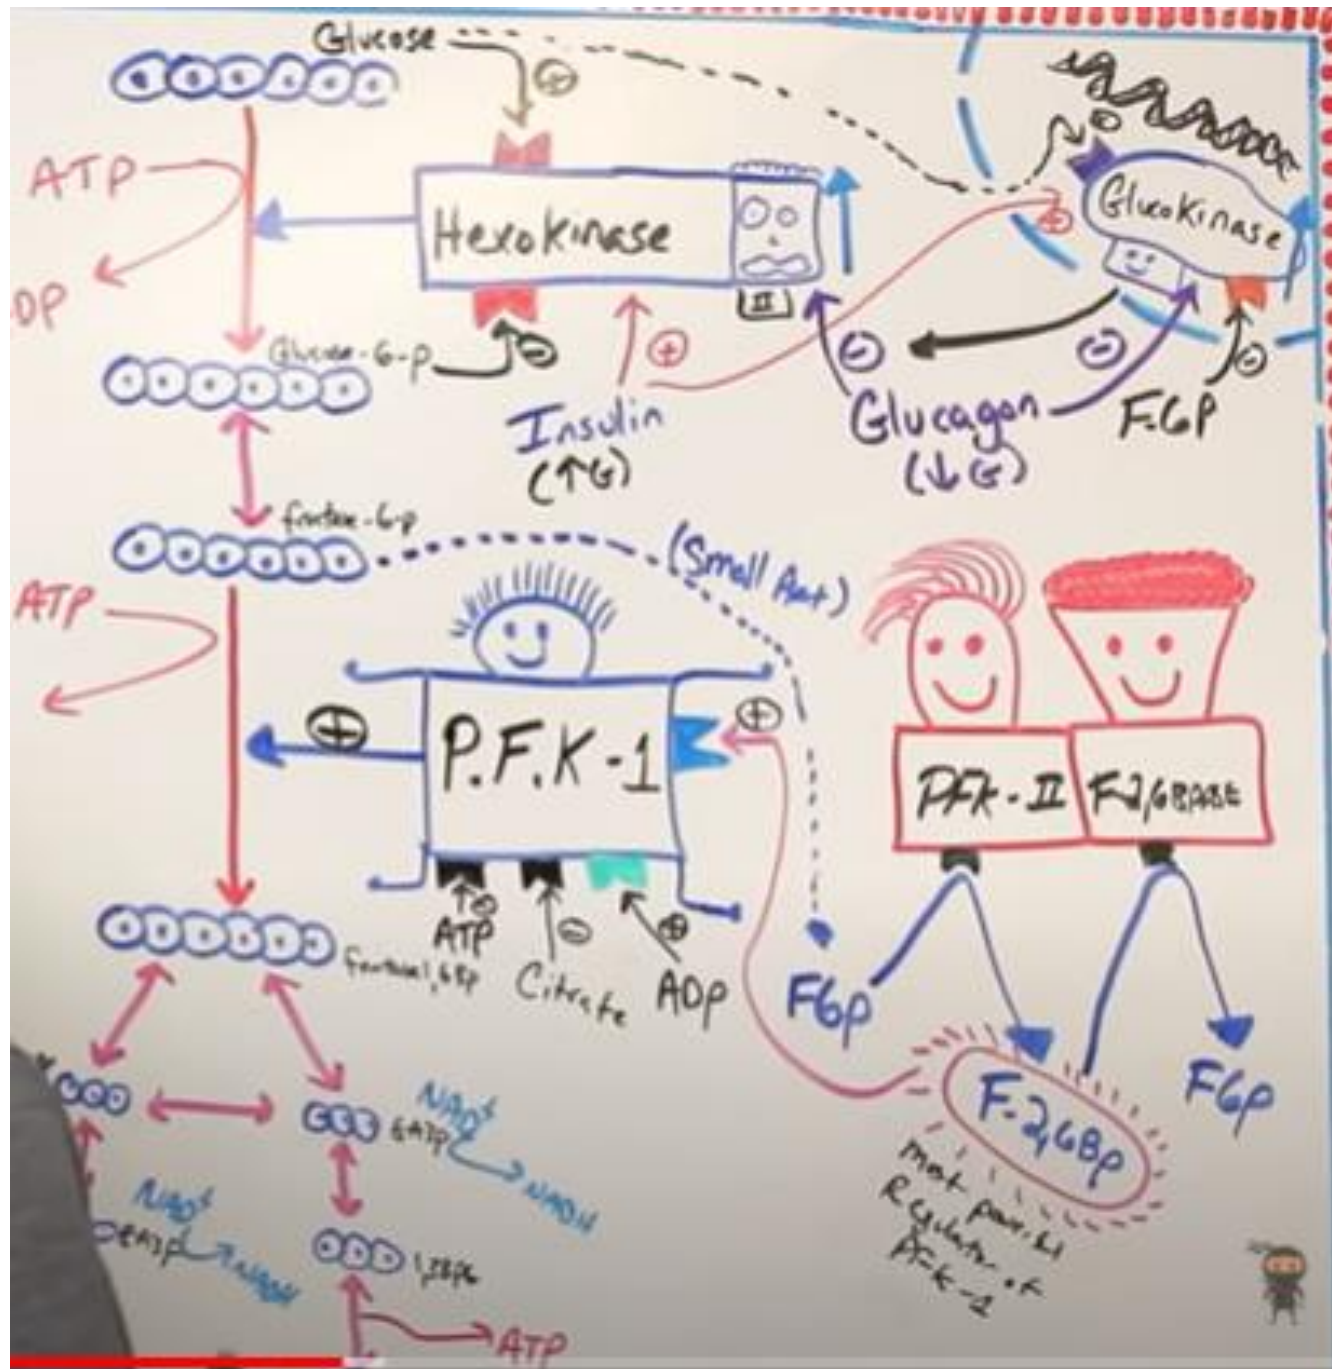 Glucose
+
ATP
DP
Hexokinase
II
+
Glucokinase
+
Glucose-6-p
-
Insulin
(↑G)
+
-
Glucagon
(↓G)
-
F-6P
-
fructose-6-p
(Small Amt)
ATP
+
P.F.K-1
+
PFK-II
F-2,6BPASE
-
ATP
-
Citrate
+
ADP
F6P
F-2,6BP
F6P
most powerful
Regulator of
PFK-1
NAD+
GA3P
NADH
NAD+
GA3P
NADH
1,3BPG
ATP